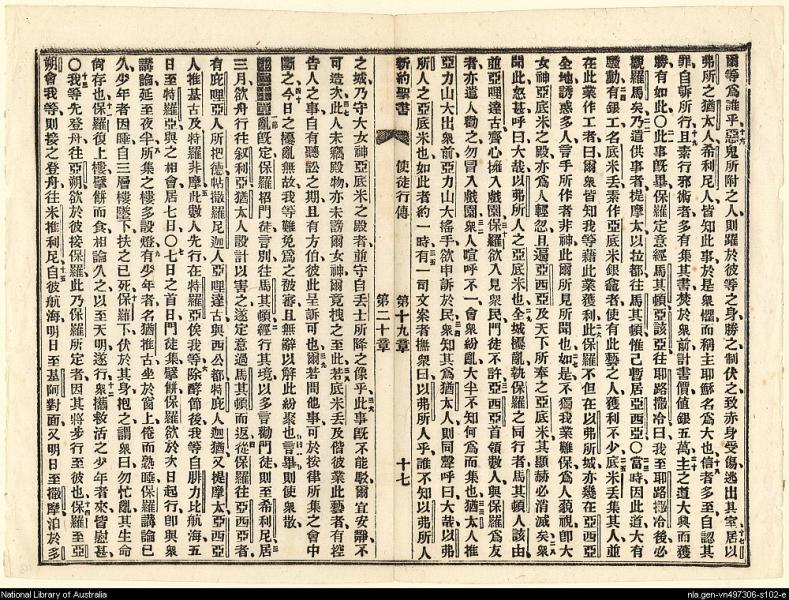 爾等爲誰乎惡鬼所附之人則躍於彼等之身勝之制伏之致赤身受傷逃出其室居以
弗所之猶太人希利尼人皆知此事於是衆懼而稱主耶穌名爲大也信者多至自認其
罪自訴所行且素行邪術者多有集其書焚於衆前計書價值銀五萬主之道大興而獲
勝有如此○此事既畢保羅定意經馬其頓亞該亞往耶路撒冷曰我至耶路撒冷後必
觀羅馬矣乃遣供事者提摩太以拉都往馬其頓惟己暫居亞西亞○當時因此道大有
騷動有銀工名底米丟素作亞底米銀龕者使有此藝之人獲利不少底米丟集其人並
在此業作工者曰爾衆皆知我等藉此業獲利此保羅不但在以弗所城亦幾在亞西亞
全地誘惑多人言手所作者非神此爾所見所聞也如是不獨我業難保爲人藐視卽大
女神亞底米之殿亦爲人輕忽且遍亞西亞及天下所奉之亞底米其顯赫必消滅矣衆
聞此怒甚呼曰大哉以弗所人之亞底米也全城擾亂執保羅之同行者馬其頓人該由
並亞哩達古齊心擁入戲園保羅欲入見衆民門徒不許亞西亞首領數人與保羅爲友
者亦遣人勸之勿冒入戲園衆人喧呼不一會衆紛亂大半不知何爲而集也猶太人推
亞力山大出衆前亞力山大搖手欲申訴於民衆知其爲猶太人則同聲呼曰大哉以弗
所人之亞底米也如此者約一時有一司文案者撫衆曰以弗所人乎誰不知以弗所人
新約聖書 使徒行傳 第十九章 第二十章 十七
之城乃守大女神亞底米之殿者並守自丟士所降之像乎此事既不能駁爾宜安靜不
可造次此人未竊殿物亦未謗爾女神爾竟拽之至此若底米丟及偕彼業此藝者有控
告人之事自有聽訟之期且有方伯彼此呈訴可也爾若問他事可於按律所集之會中
斷之今日之擾亂無故我等難免爲之被審且無辭以解此紛聚也言畢則使衆散
亂既定保羅招門徒言別往馬其頓經行其境以多言勸門徒則至希利尼居
三月欲舟行往叙利亞猶太人設計以害之遂定意過馬其頓而返從保羅往亞西亞者
有庇哩亞人所把德帖撒羅尼迦人亞哩達古與西公都特庇人迦猶又提摩太亞西亞
人推基古及特羅非摩此數人先行在特羅亞俟我等除酵節後我等自腓力比航海五
日至特羅亞與之相會居七日○七日之首日門徒集擘餅保羅欲於次日起行卽與衆
講論延至夜半所集之樓多設燈有少年者名猶推古坐於窗上倦而熟睡保羅講論已
久少年者因睡自三層樓墜下扶之已死保羅下伏於其身抱之謂衆曰勿忙亂其生命
尚存也保羅復上樓擘餅而食相論久之以至天明遂行衆攜救活之少年者來皆慰甚
○我等先登舟往亞朔欲於彼接保羅此乃保羅所定者因其將步行至彼也保羅至亞
朔會我等則接之登舟往米推利尼自彼航海明日至基阿對面又明日至撒摩泊於多
National Library of Australia
nla.gen-vn497306-s102-e